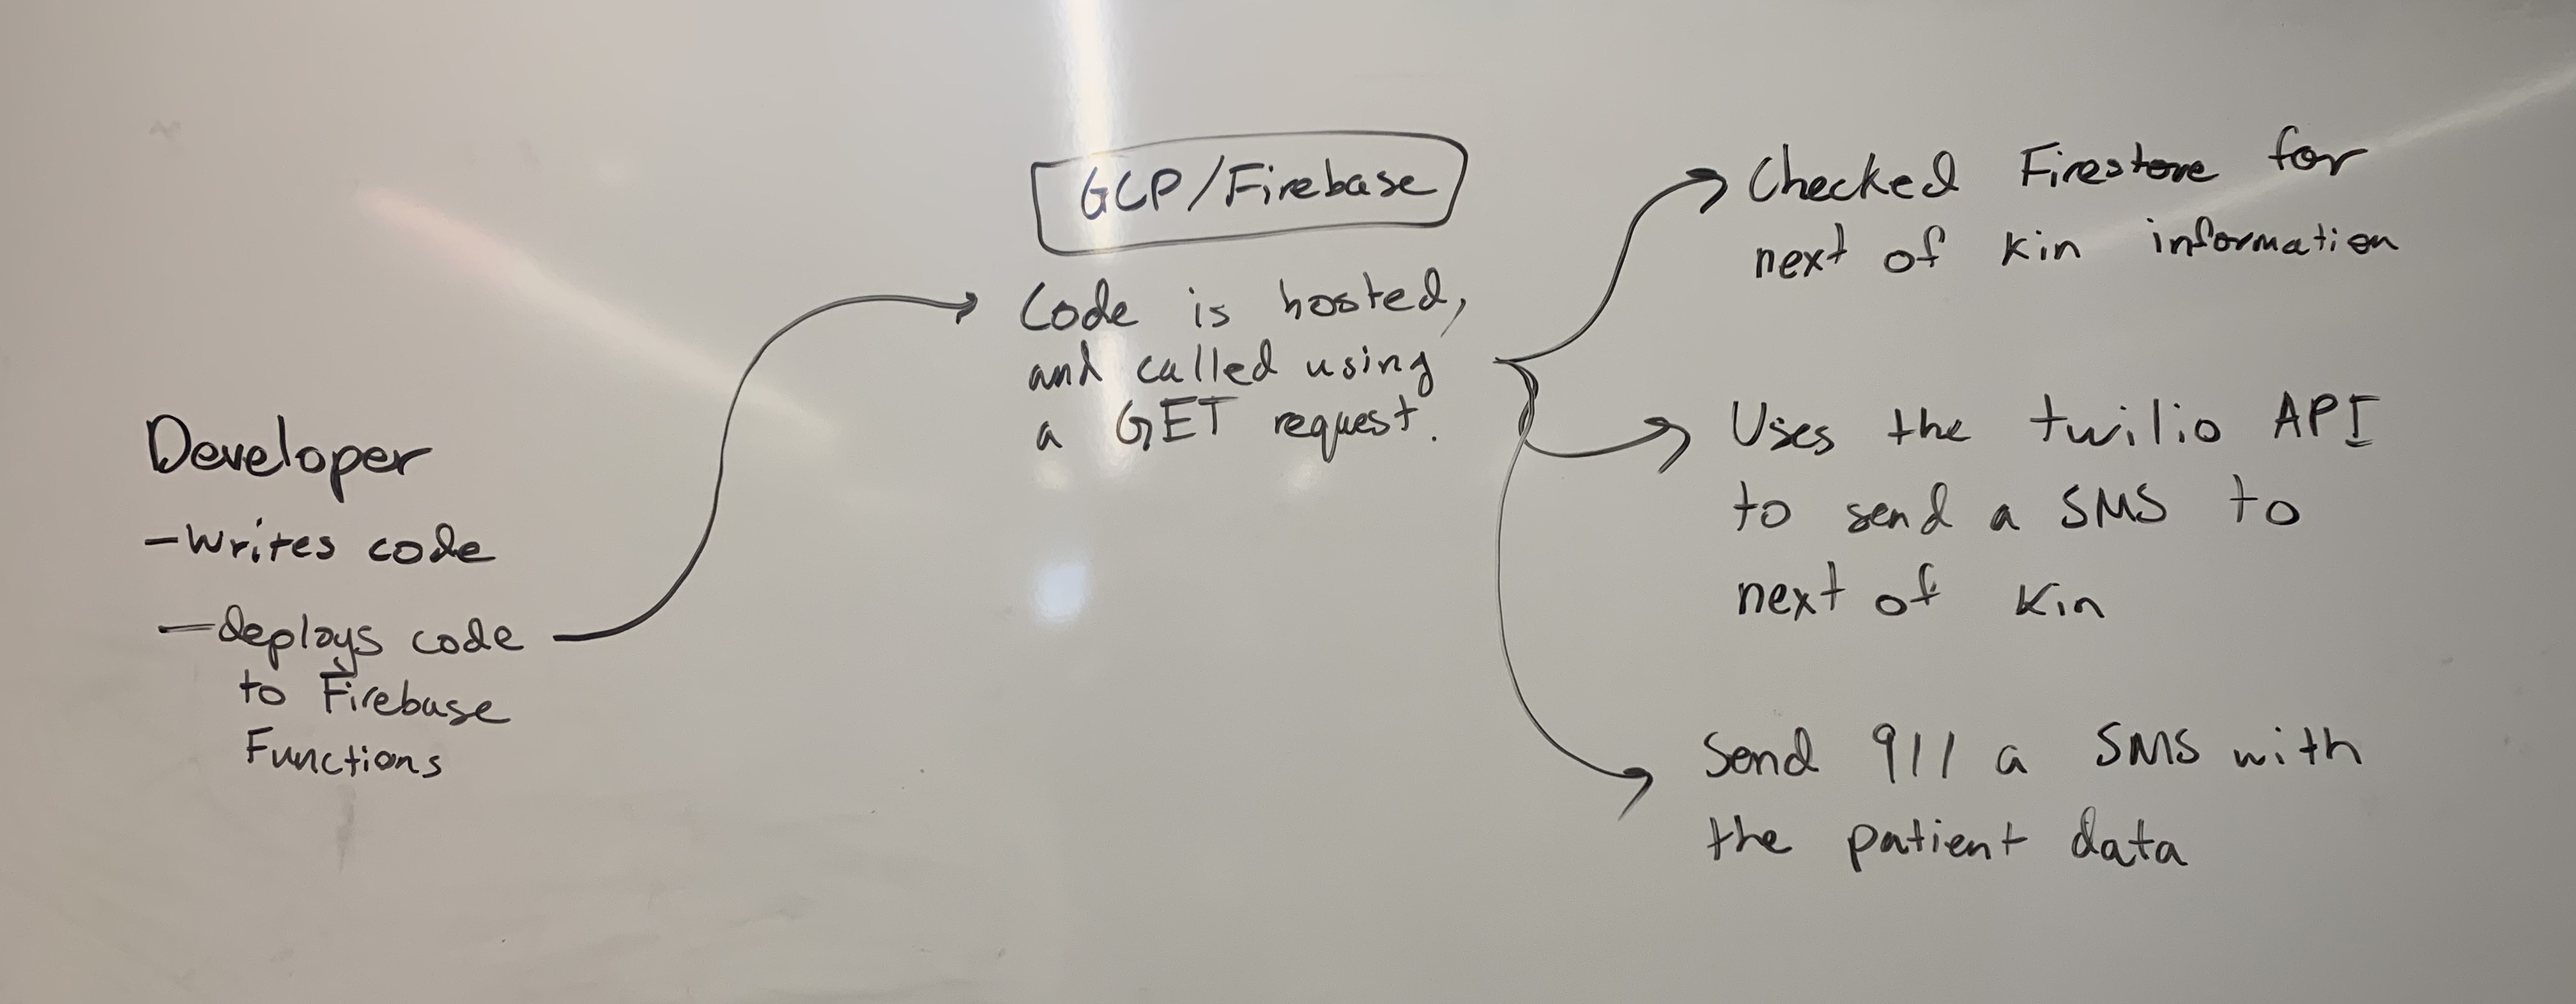 Developer
- Writes code
- deploys code
to Firebase
Functions
GCP/Firebase
Code is hosted,
and called using
a GET request.
Checked Firestore for
next of kin information
Uses the twilio API
to send a SMS to
next of kin
Send 911 a SMS with
the patient data